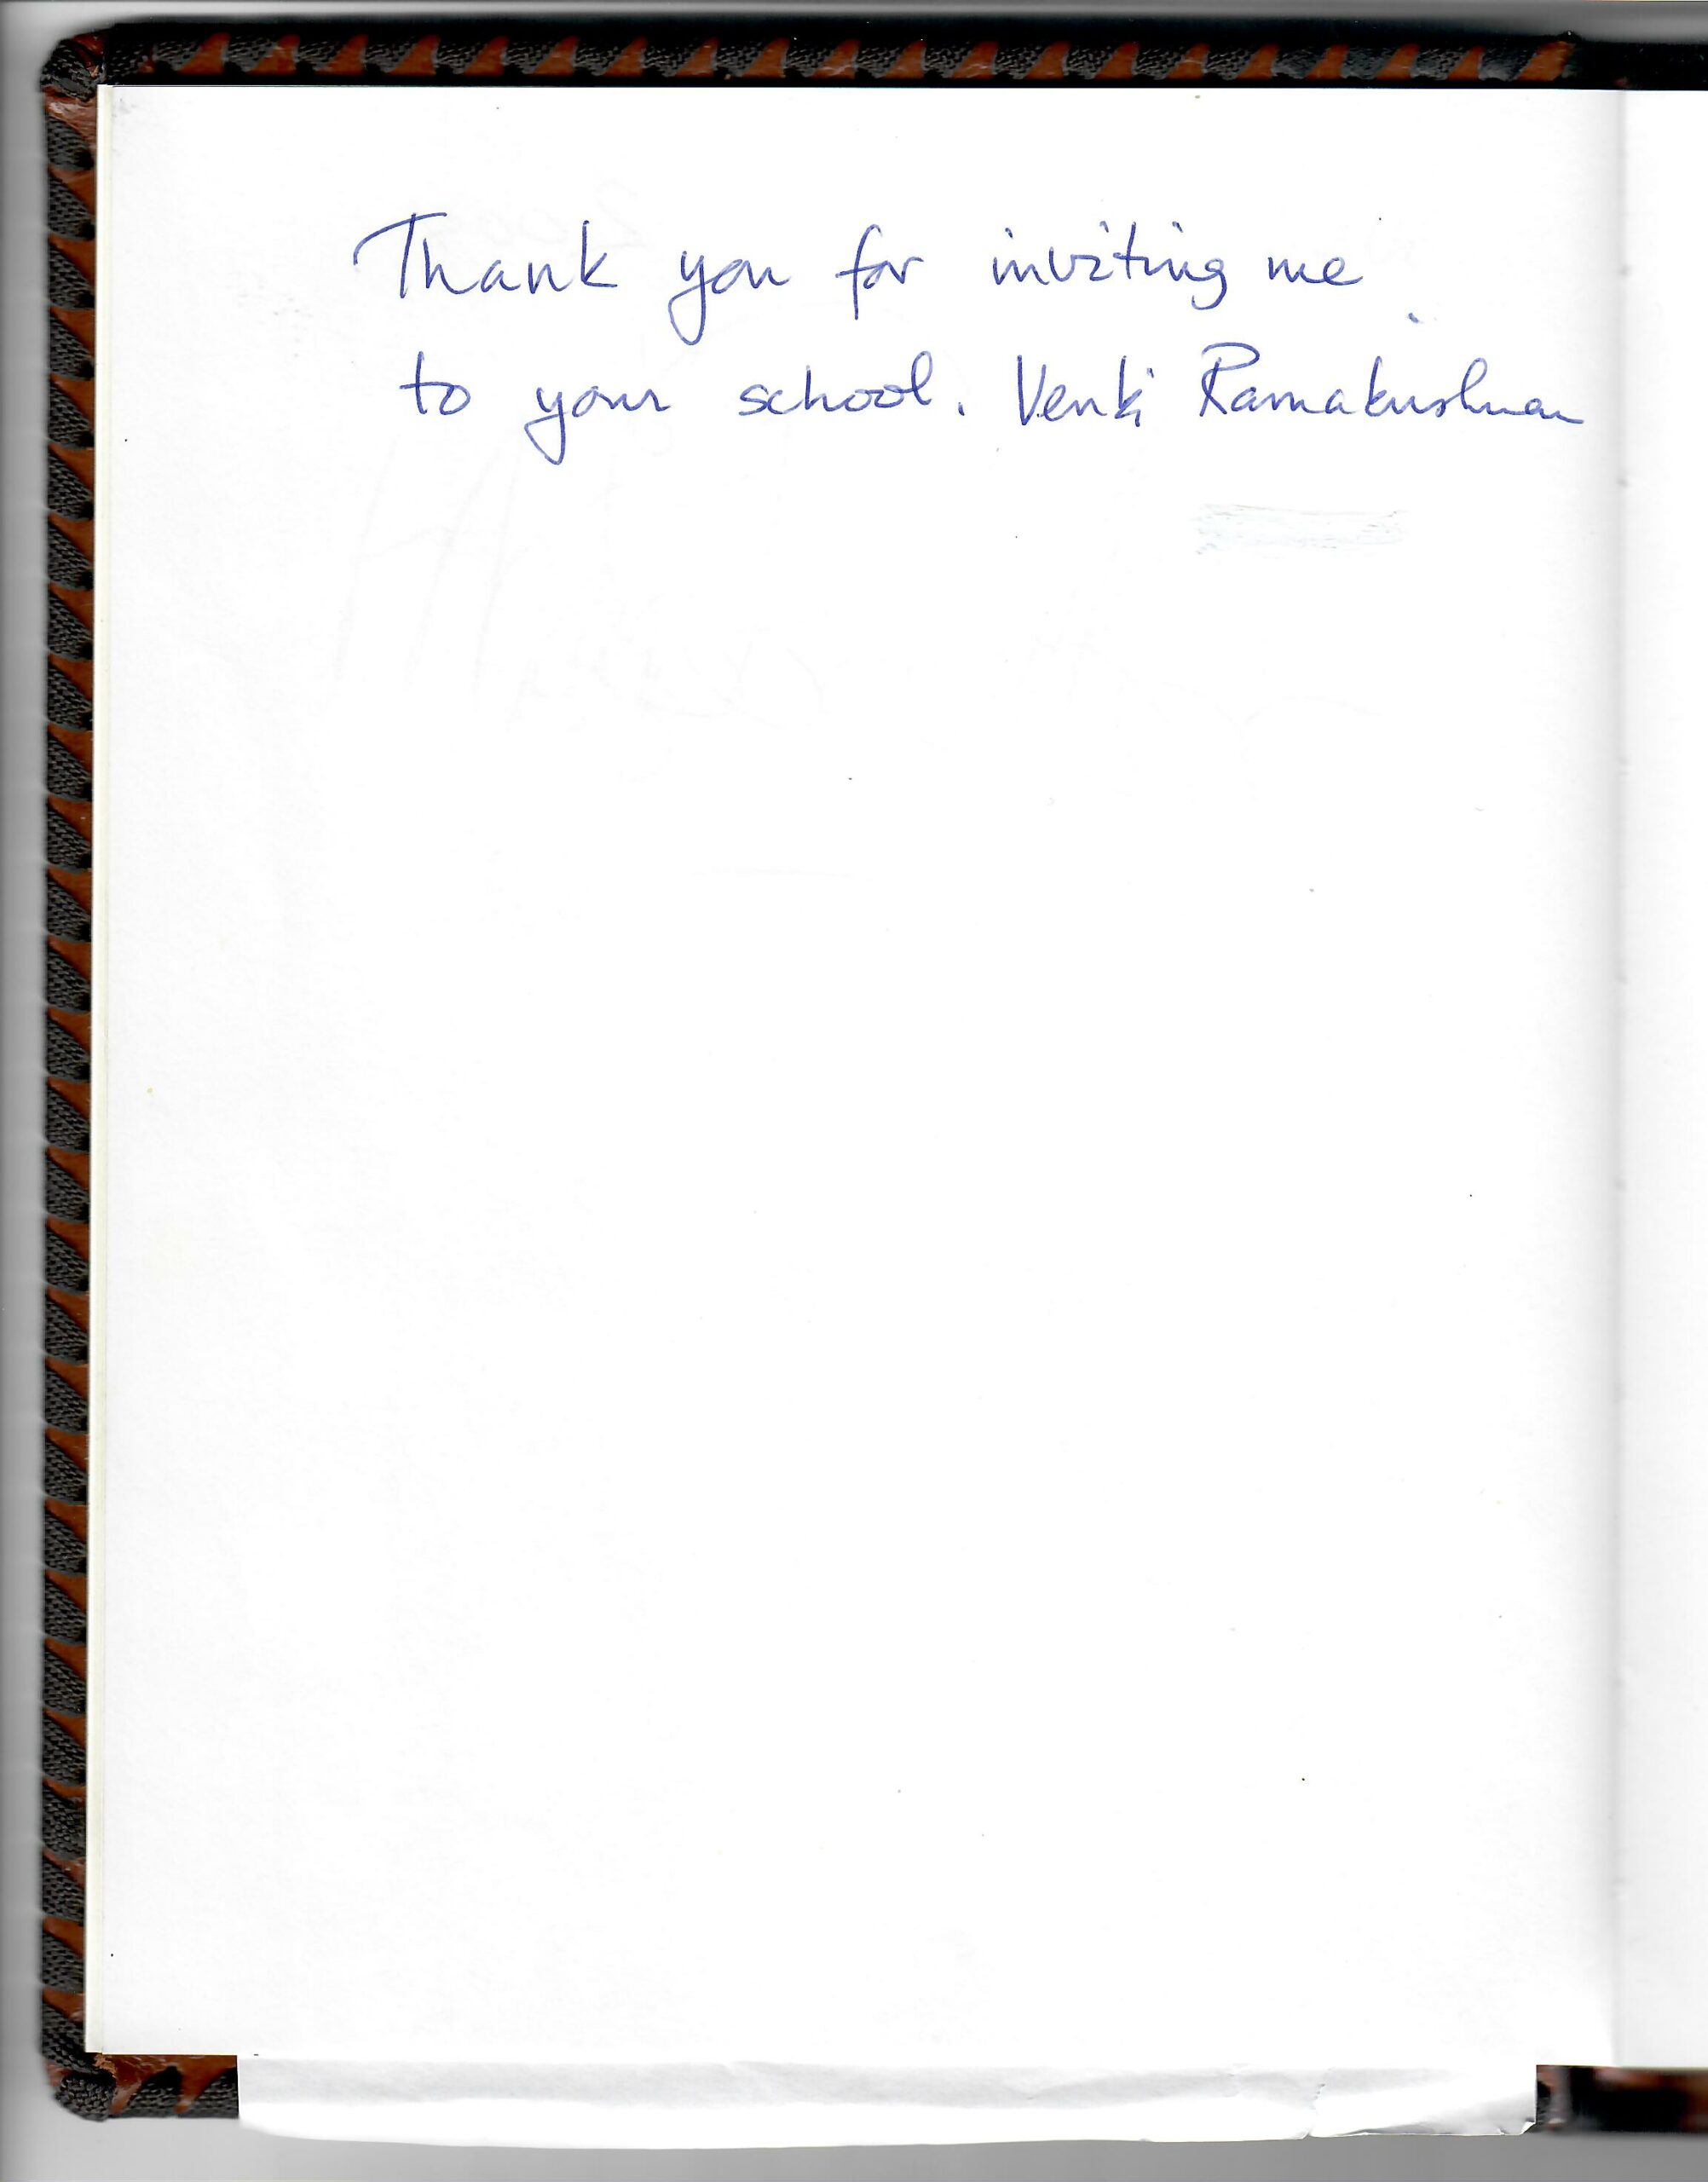 Thank you for inviting me
to your school. Venki Ramakrishnan